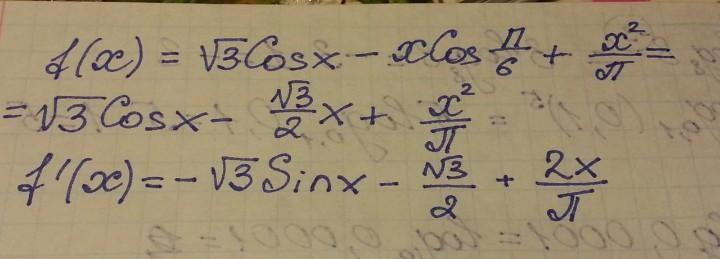 f(x) = √3Cosx − xCos π/6 + x²/π =
= √3Cosx − √3/2 x + x²/π
f'(x) = −√3Sinx − √3/2 + 2x/π